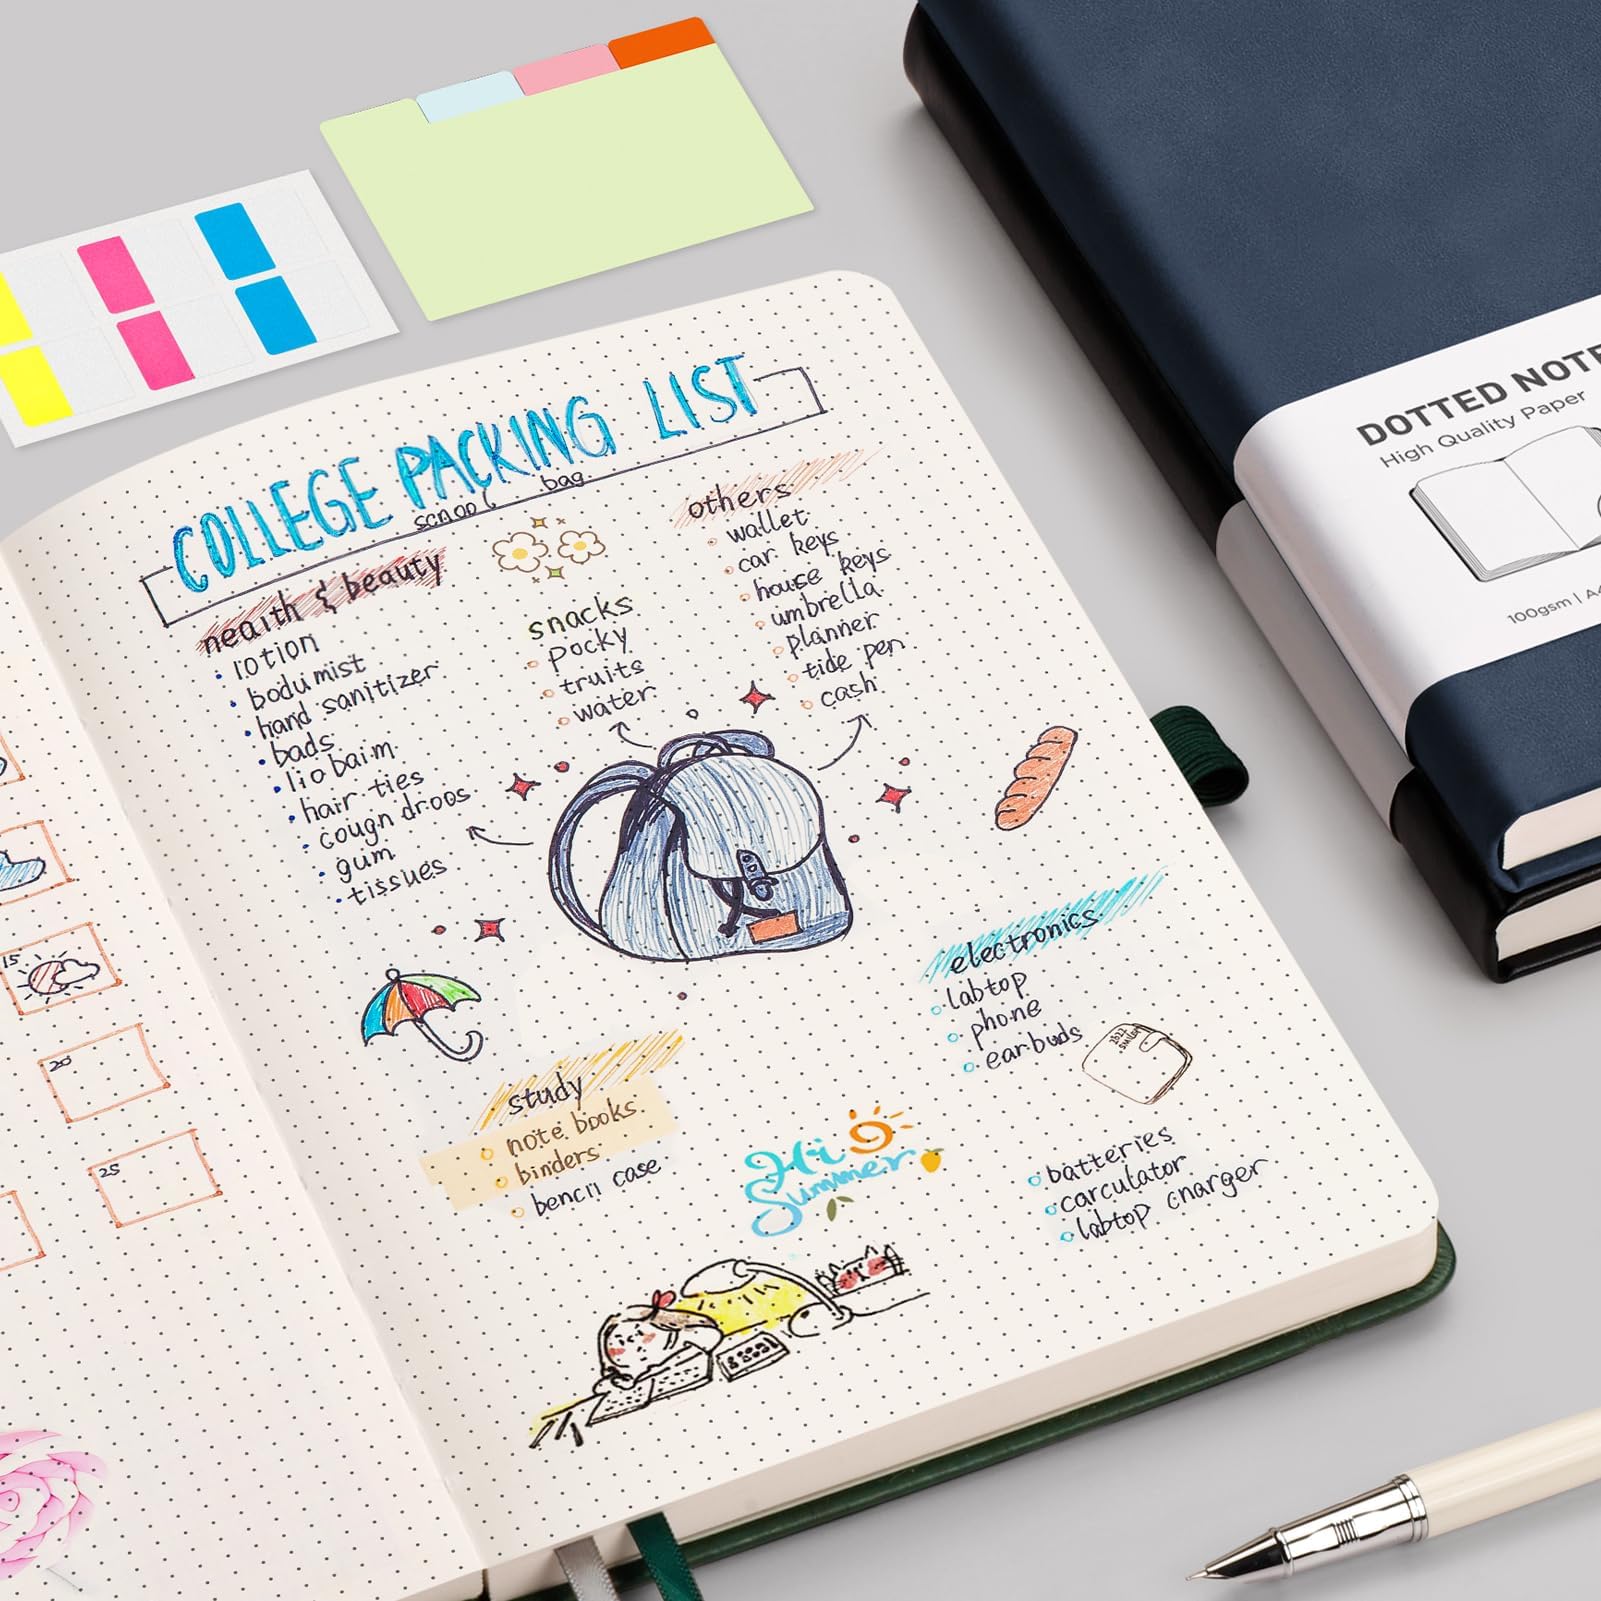 COLLEGE PACKING LIST
scnool bag
neaith & beauty
lotion
bodumist
hand sanitizer
bads
lio baim
hair ties
cougn droos
gum
tissues
snacks
pocky
truits
water
others
wallet
car keys
house keys
umbrella
planner
tide pen
cash
electronics
labtop
phone
earbuds
batteries
carculator
labtop cnarger
study
note books
binders
bencil case
Hi
Summer
15
20
25
DOTTED NOTE
High Quality Paper
100gsm | A